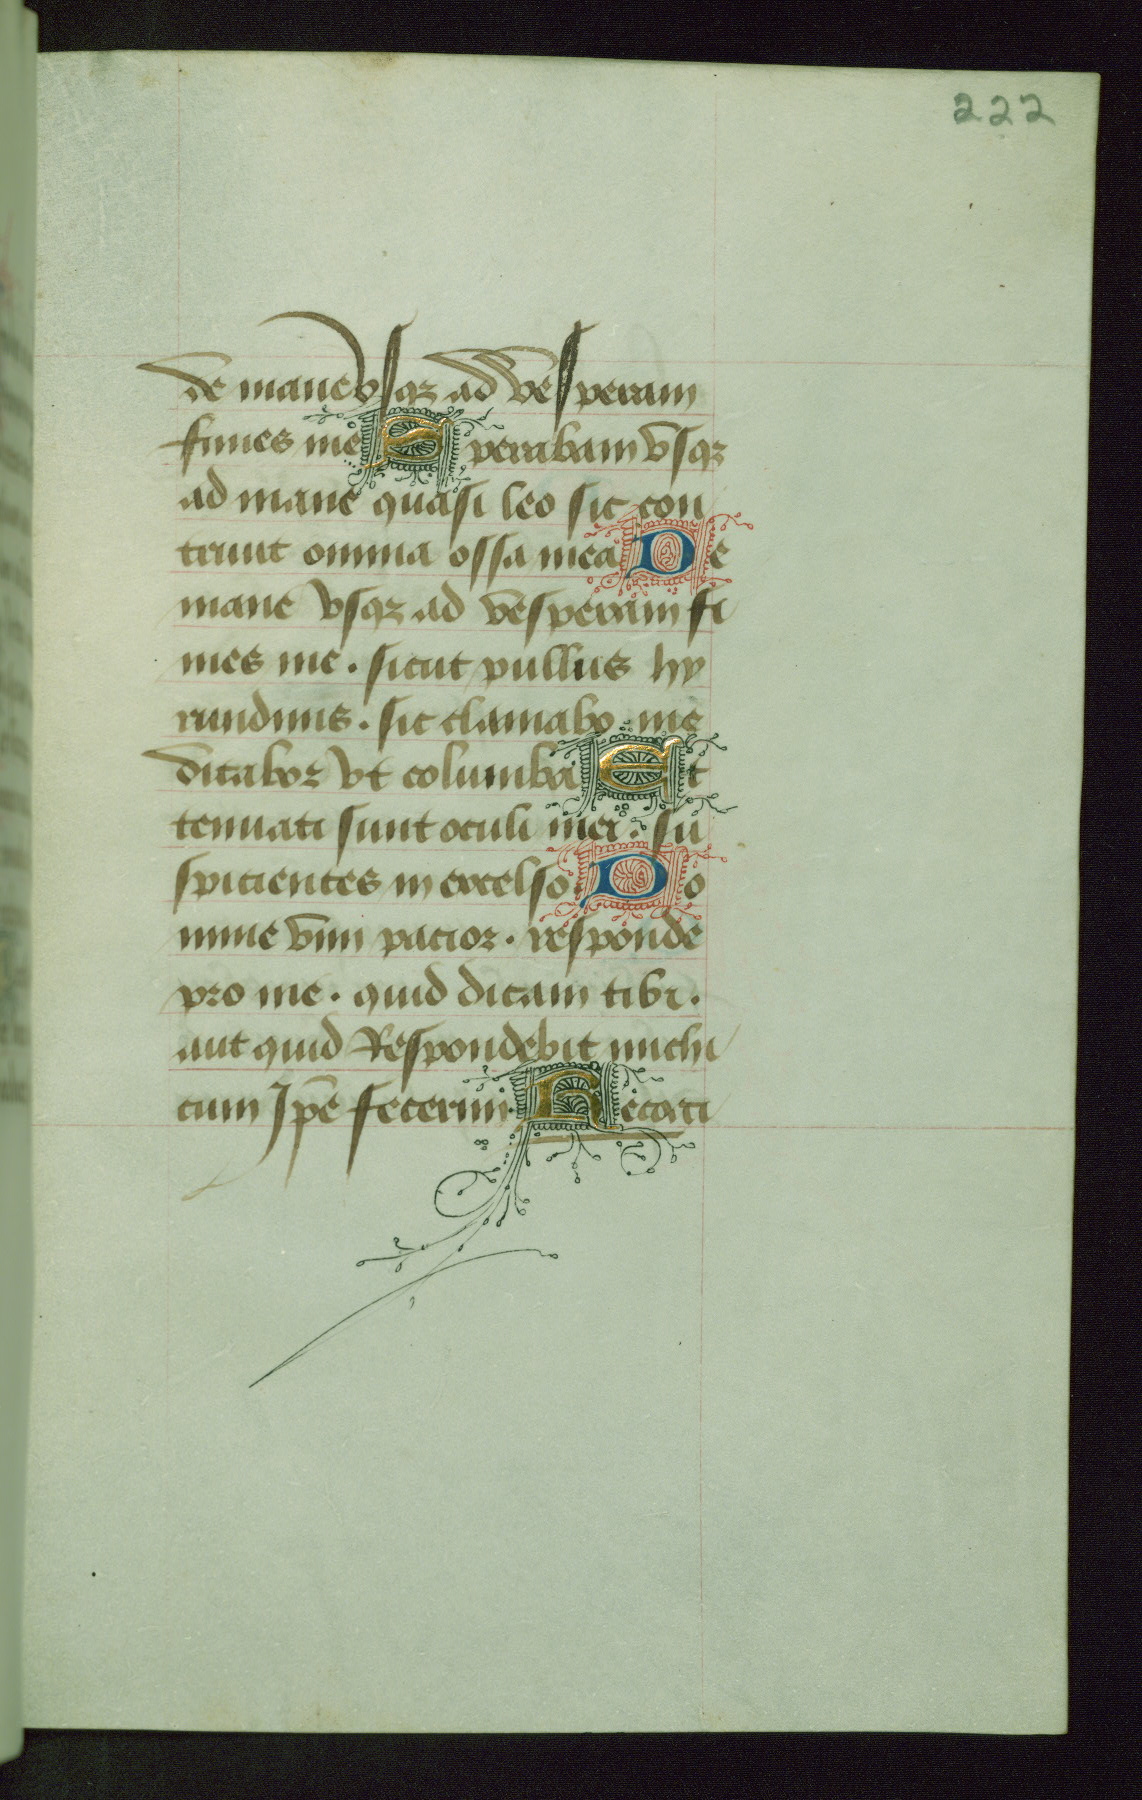 222
de mane vsqz ad vesperam
finies me Sperabam vsqz
ad mane quasi leo sic con
triuit omnia ossa mea De
mane vsqz ad vesperam fi
nies me . sicut pullus hy
rundinis . sic clamabo me
ditabor vt columba At
tenuati sunt oculi mei . su
spicientes in excelso . Do
mine vim pacior . responde
pro me . quid dicam tibi .
aut quid Respondebit michi
cum Jpē fecerim . Recoti